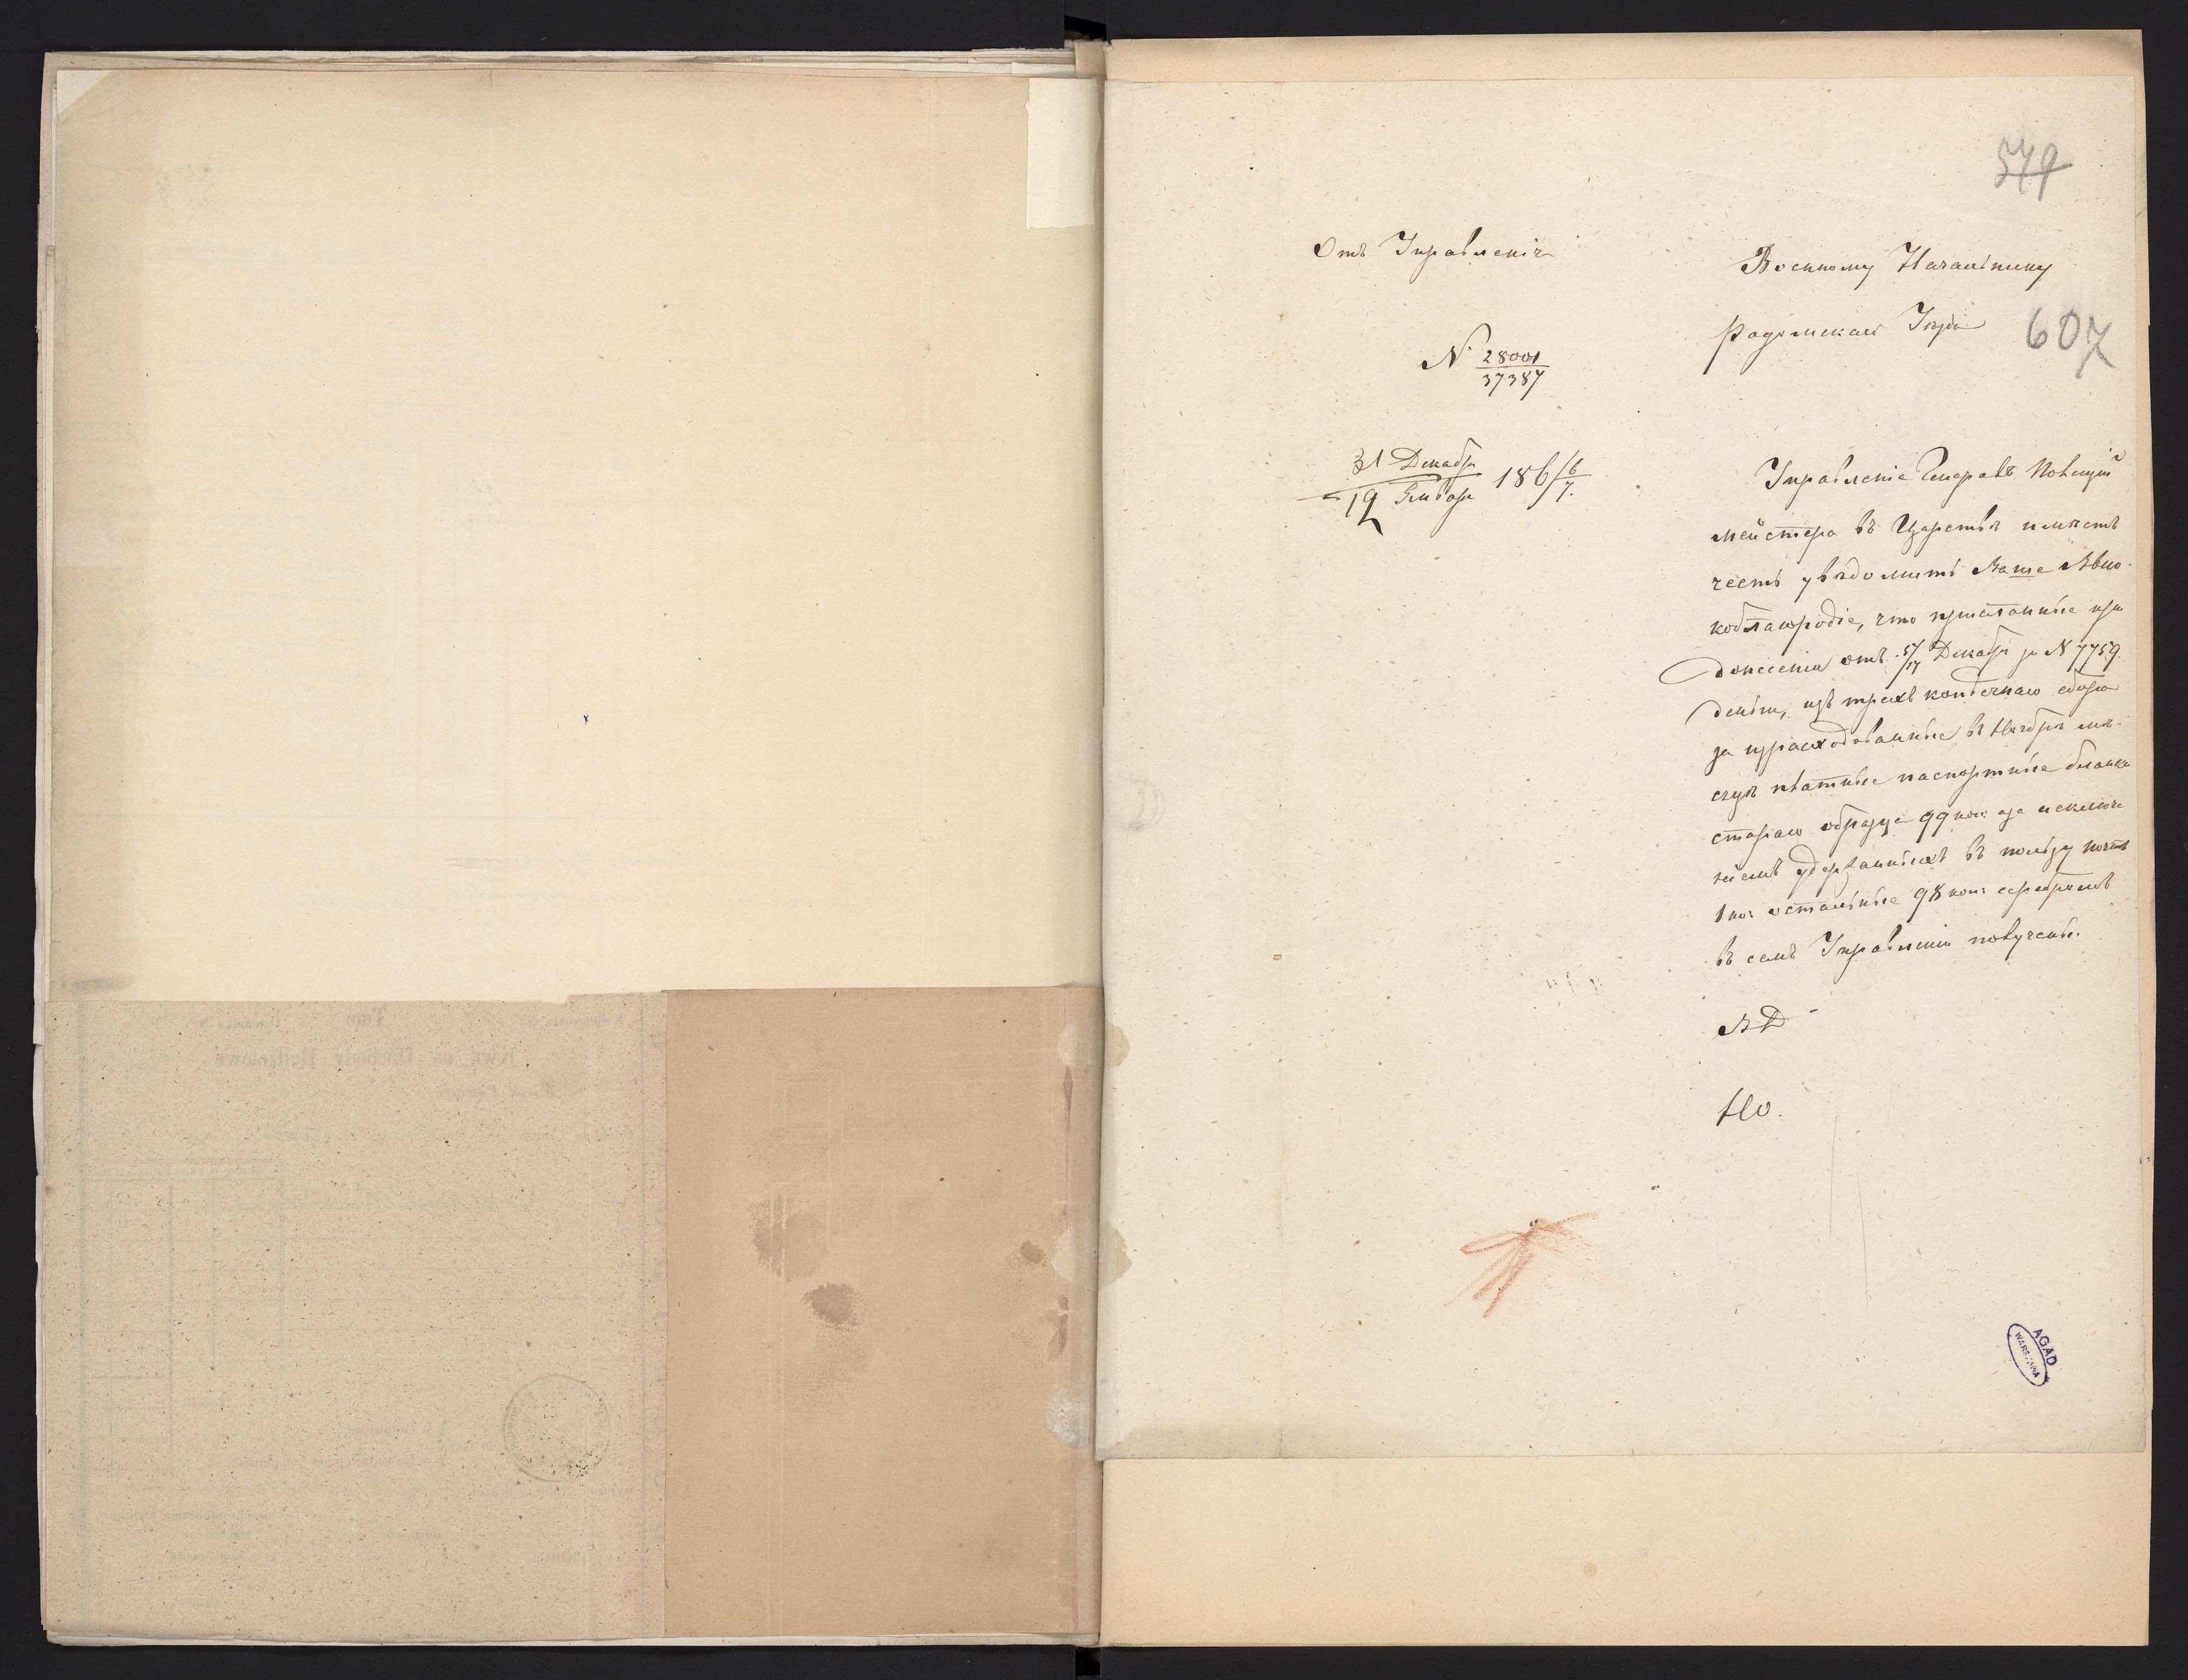 579
607
Отъ Управленія
N 28001
37387
31 Декабря
12 Января 186 6/7.
Военному Начальнику
Радомскаго Уѣзда
Управленіе Генералъ Полицій
мейстера въ Царствѣ имѣетъ
честь увѣдомить Ваше Высо-
коблагородіе, что присланные при
донесеніи отъ 5/17 Декабря за N 7759
деньги, изъ трехъ копѣечнаго сбора
за израсходованные въ Ноябрѣ мѣ-
сяцѣ платные паспортные бланки
стараго образца 99 коп: за исключе
ніемъ удержанныхъ въ пользу почты
1 коп: остальные 98 коп: серебромъ
въ семъ Управленіи получены.
ВД
Но.
AGAD
WARSZAWA